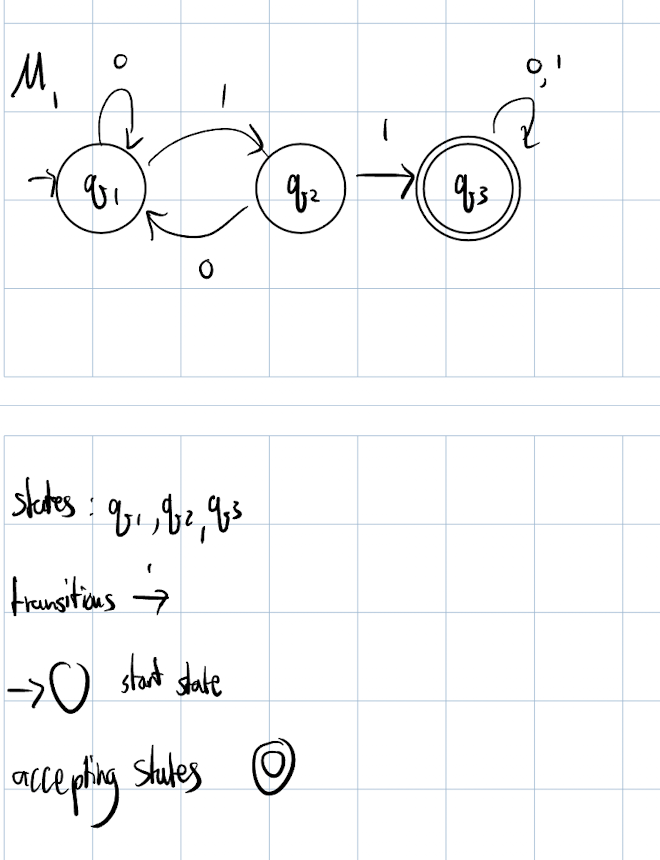 0
0,1
M₁
1
1
q₁ q₂ q₃
0
states : q₁, q₂, q₃
transitions 1→
→○ start state
accepting states ◎